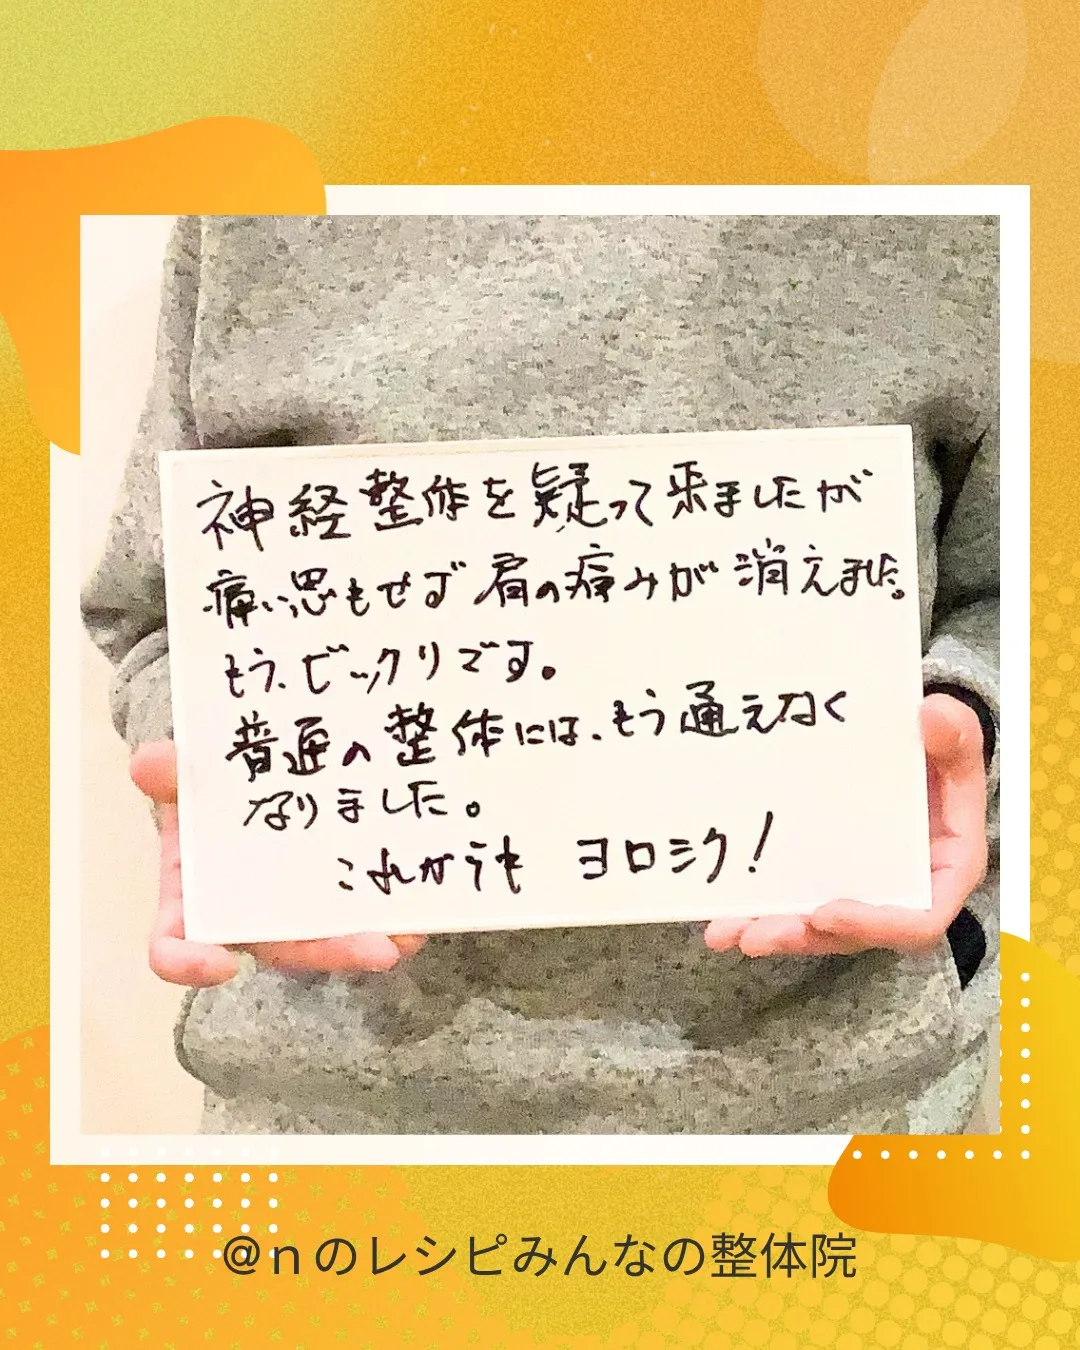 神経整体を疑って来ましたが
痛い思もせず肩の痛みが消えました。
もう、ビックリです。
普通の整体には、もう通えなく
なりました。
これからも ヨロシク!
@nのレシピみんなの整体院